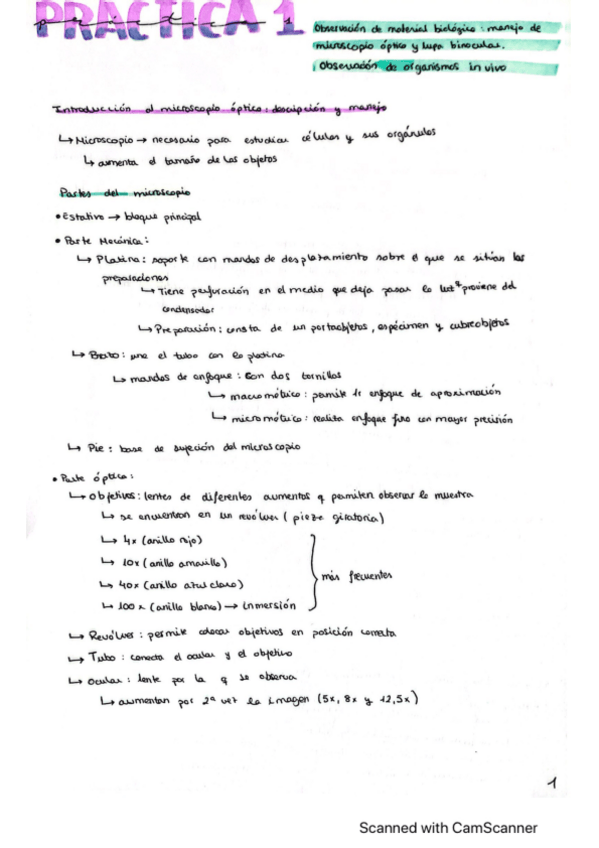 PRÁCTICA 1
práctica 1
Observación de material biológico: manejo de
microscopio óptico y lupa binocular.
Observación de organismos in vivo
Introducción al microscopio óptico: descripción y manejo
↳ Microscopio → necesario para estudiar células y sus orgánulos
↳ aumenta el tamaño de los objetos
Partes del microscopio
• Estativo → bloque principal
• Parte Mecánica:
↳ Platina: soporte con mandos de desplazamiento sobre el que se sitúan las
preparaciones
↳ Tiene perforación en el medio que deja pasar la luz q proviene del
condensador
↳ Preparación: consta de un portaobjetos, espécimen y cubreobjetos
↳ Brazo: une el tubo con la platina
↳ mandos de enfoque: con dos tornillos
↳ macrométrico: permite enfoque de aproximación
↳ micrométrico: realiza enfoque fino con mayor precisión
↳ Pie: base de sujeción del microscopio
• Parte óptica:
↳ Objetivos: lentes de diferentes aumentos q permiten observar la muestra
↳ se encuentran en un revólver (pieza giratoria)
↳ 4x (anillo rojo)
↳ 10x (anillo amarillo)
↳ 40x (anillo azul claro)
↳ 100x (anillo blanco) → inmersión
más frecuentes
↳ Revólver: permite colocar objetivos en posición correcta
↳ Tubo: conecta el ocular y el objetivo
↳ Ocular: lente por la q se observa
↳ aumentan por 2ª vez la imagen (5x, 8x y 12,5x)
1
Scanned with CamScanner